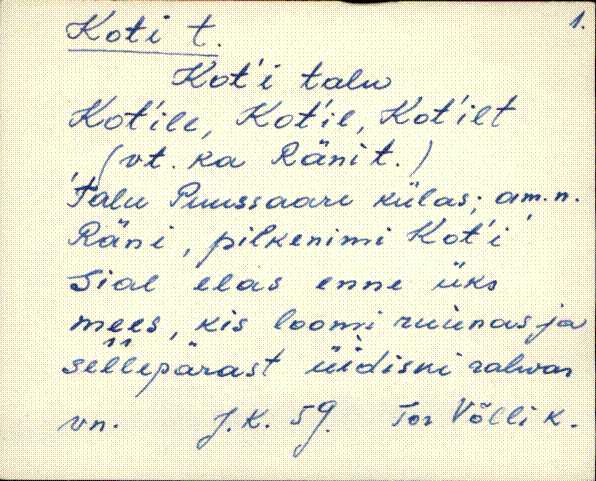 1.
Koti t.
Kot'i talu
Kot'ile, Kot'il, Kot'ilt
(vt. ka Räni t.)
Talu Puussaare külas; am.n.
Räni, pilkenimi Kot'i
Sial elas enne üks
mees, kis loomi ruunas ja
sellepärast üidiski rahvas
vn. J.K. 59. Tor Võlli k.